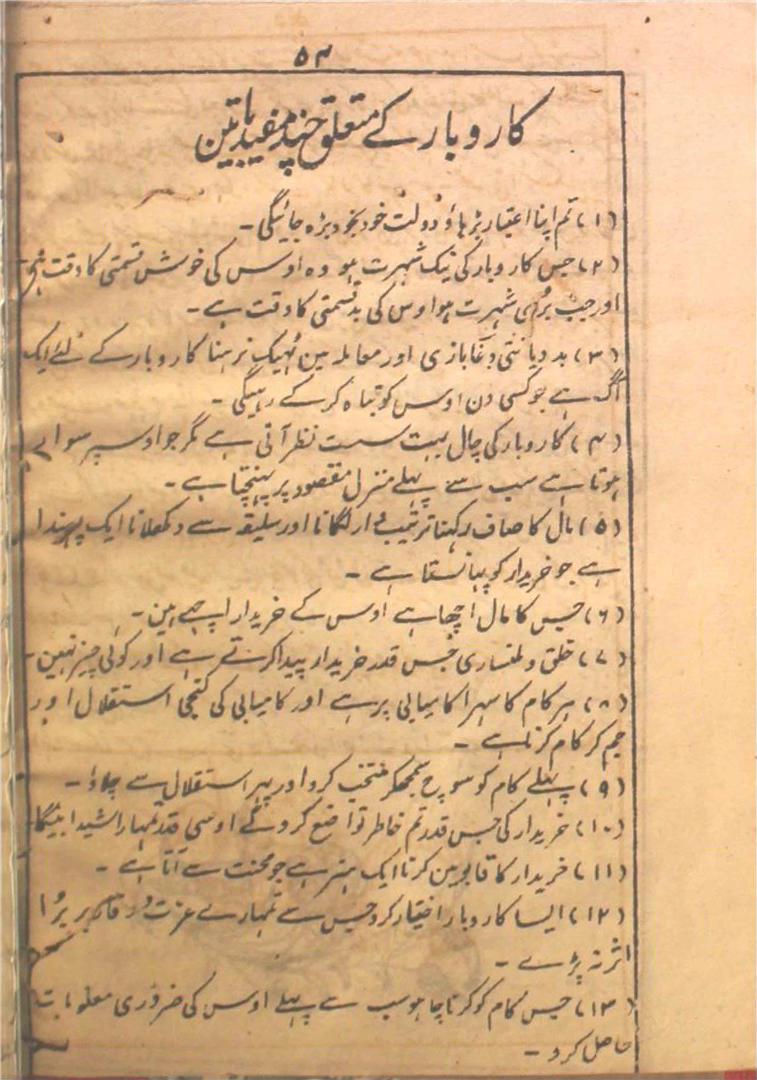 ۵۳
کاروبار کے متعلق چند مفید باتین
(۱) تم اپنا اعتبار بڑہاؤ دولت خود بخود بڑہ جائیگی۔
(۲) جس کاروبار کی نیک شہرت ہو وہ اوس کی خوش قسمتی کا وقت ہے
اور جب بُرای شہرت ہو اوس کی بدقسمتی کا وقت ہے۔
(۳) بددیانتی دغابازی اور معاملہ مین ٹھیک نرہنا کاروبار کے لئے ایک
آگ ہے جو کسی دن اوس کو تباہ کرکے رہیگی۔
(۴) کاروبار کی چال بہت سست نظر آتی ہے مگر جو اوسپر سوار
ہوتا ہے سب سے پہلے منزل مقصود پر پہنچتا ہے۔
(۵) مال کا صاف رکہنا ترتیب وار لگانا اور سلیقہ سے دکھلانا ایک پہندا
ہے جو خریدار کو پہانستا ہے۔
(۶) جس کا مال اچھا ہے اوس کے خریدار اچھے ہین۔
(۷) خلق و ملنساری جس قدر خریدار پیدا کرتے ہے اور کوئی چیز نہین۔
(۸) ہر کام کا سہرا کامیابی پر ہے اور کامیابی کی کنجی استقلال اور
جم کر کام کرنا ہے۔
(۹) پہلے کام کو سوچ سمجھکر منتخب کرو اور پہر استقلال سے چلاؤ۔
(۱۰) خریدار کی جس قدر تم خاطر تواضع کروگے اوسی قدر تمہارا شیدا بنیگا۔
(۱۱) خریدار کا قابو مین کرنا ایک ہنر ہے جو محنت سے آتا ہے۔
(۱۲) ایسا کاروبار اختیار کرو جس سے تمہارے عزت و وقار پر بُرا
اثر نہ پڑے۔
(۱۳) جس کام کو کرنا چاہو سب سے پہلے اوس کی ضروری معلومات
حاصل کرو۔